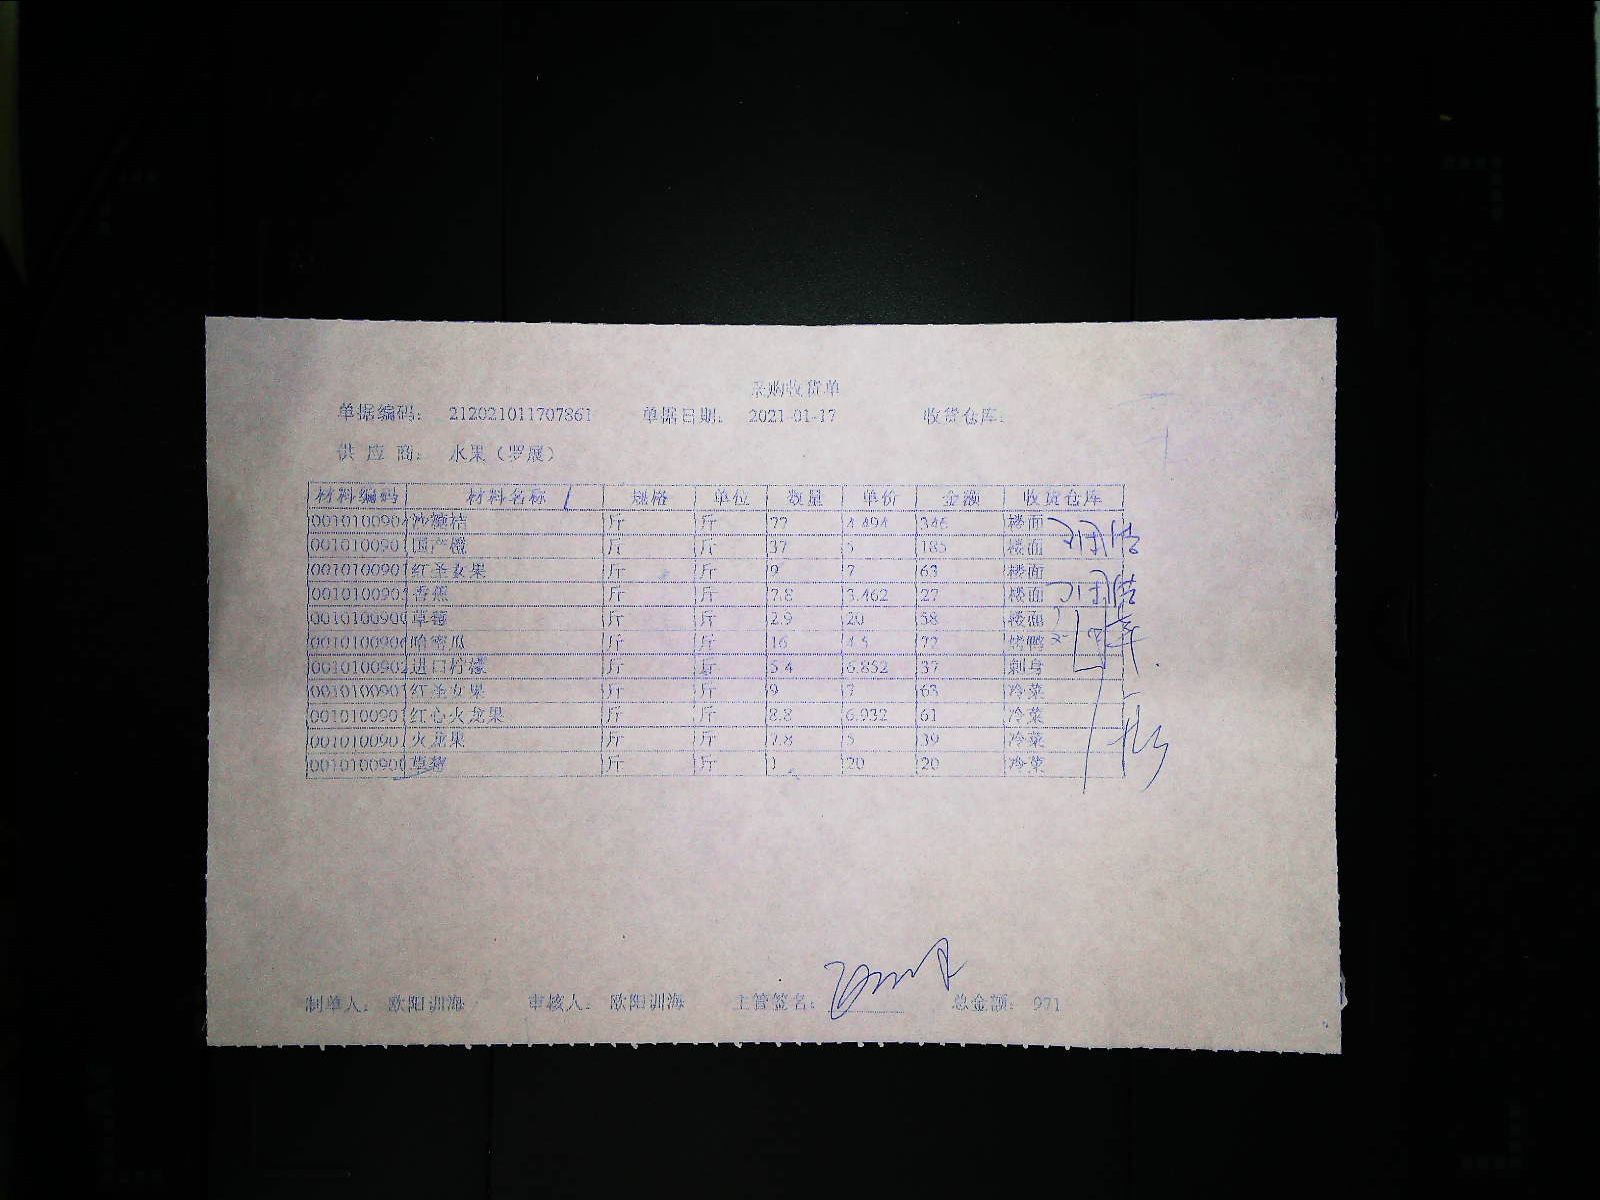 采购收货单
单据编码: 212021011707861 单据日期: 2021-01-17 收货仓库:
供 应 商: 水果（罗展）
材料编码 材料名称 规格 单位 数量 单价 金额 收货仓库
沙糖桔 斤 斤 77 4.494 346 楼面
国产橙 斤 斤 37 5 185 楼面
001010090 红圣女果 斤 斤 9 7 63 楼面
香蕉 斤 斤 7.8 3.462 27 楼面
草莓 斤 斤 2.9 20 58 楼面
哈密瓜 斤 斤 16 4.5 72 烤鸭
进口柠檬 斤 斤 5.4 6.852 37 刺身
红圣女果 斤 斤 9 7 63 冷菜
红心火龙果 斤 斤 8.8 6.932 61 冷菜
火龙果 斤 斤 7.8 5 39 冷菜
草莓 斤 斤 1 20 20 冷菜
制单人: 欧阳训海 审核人: 欧阳训海 主管签名: 总金额: 971